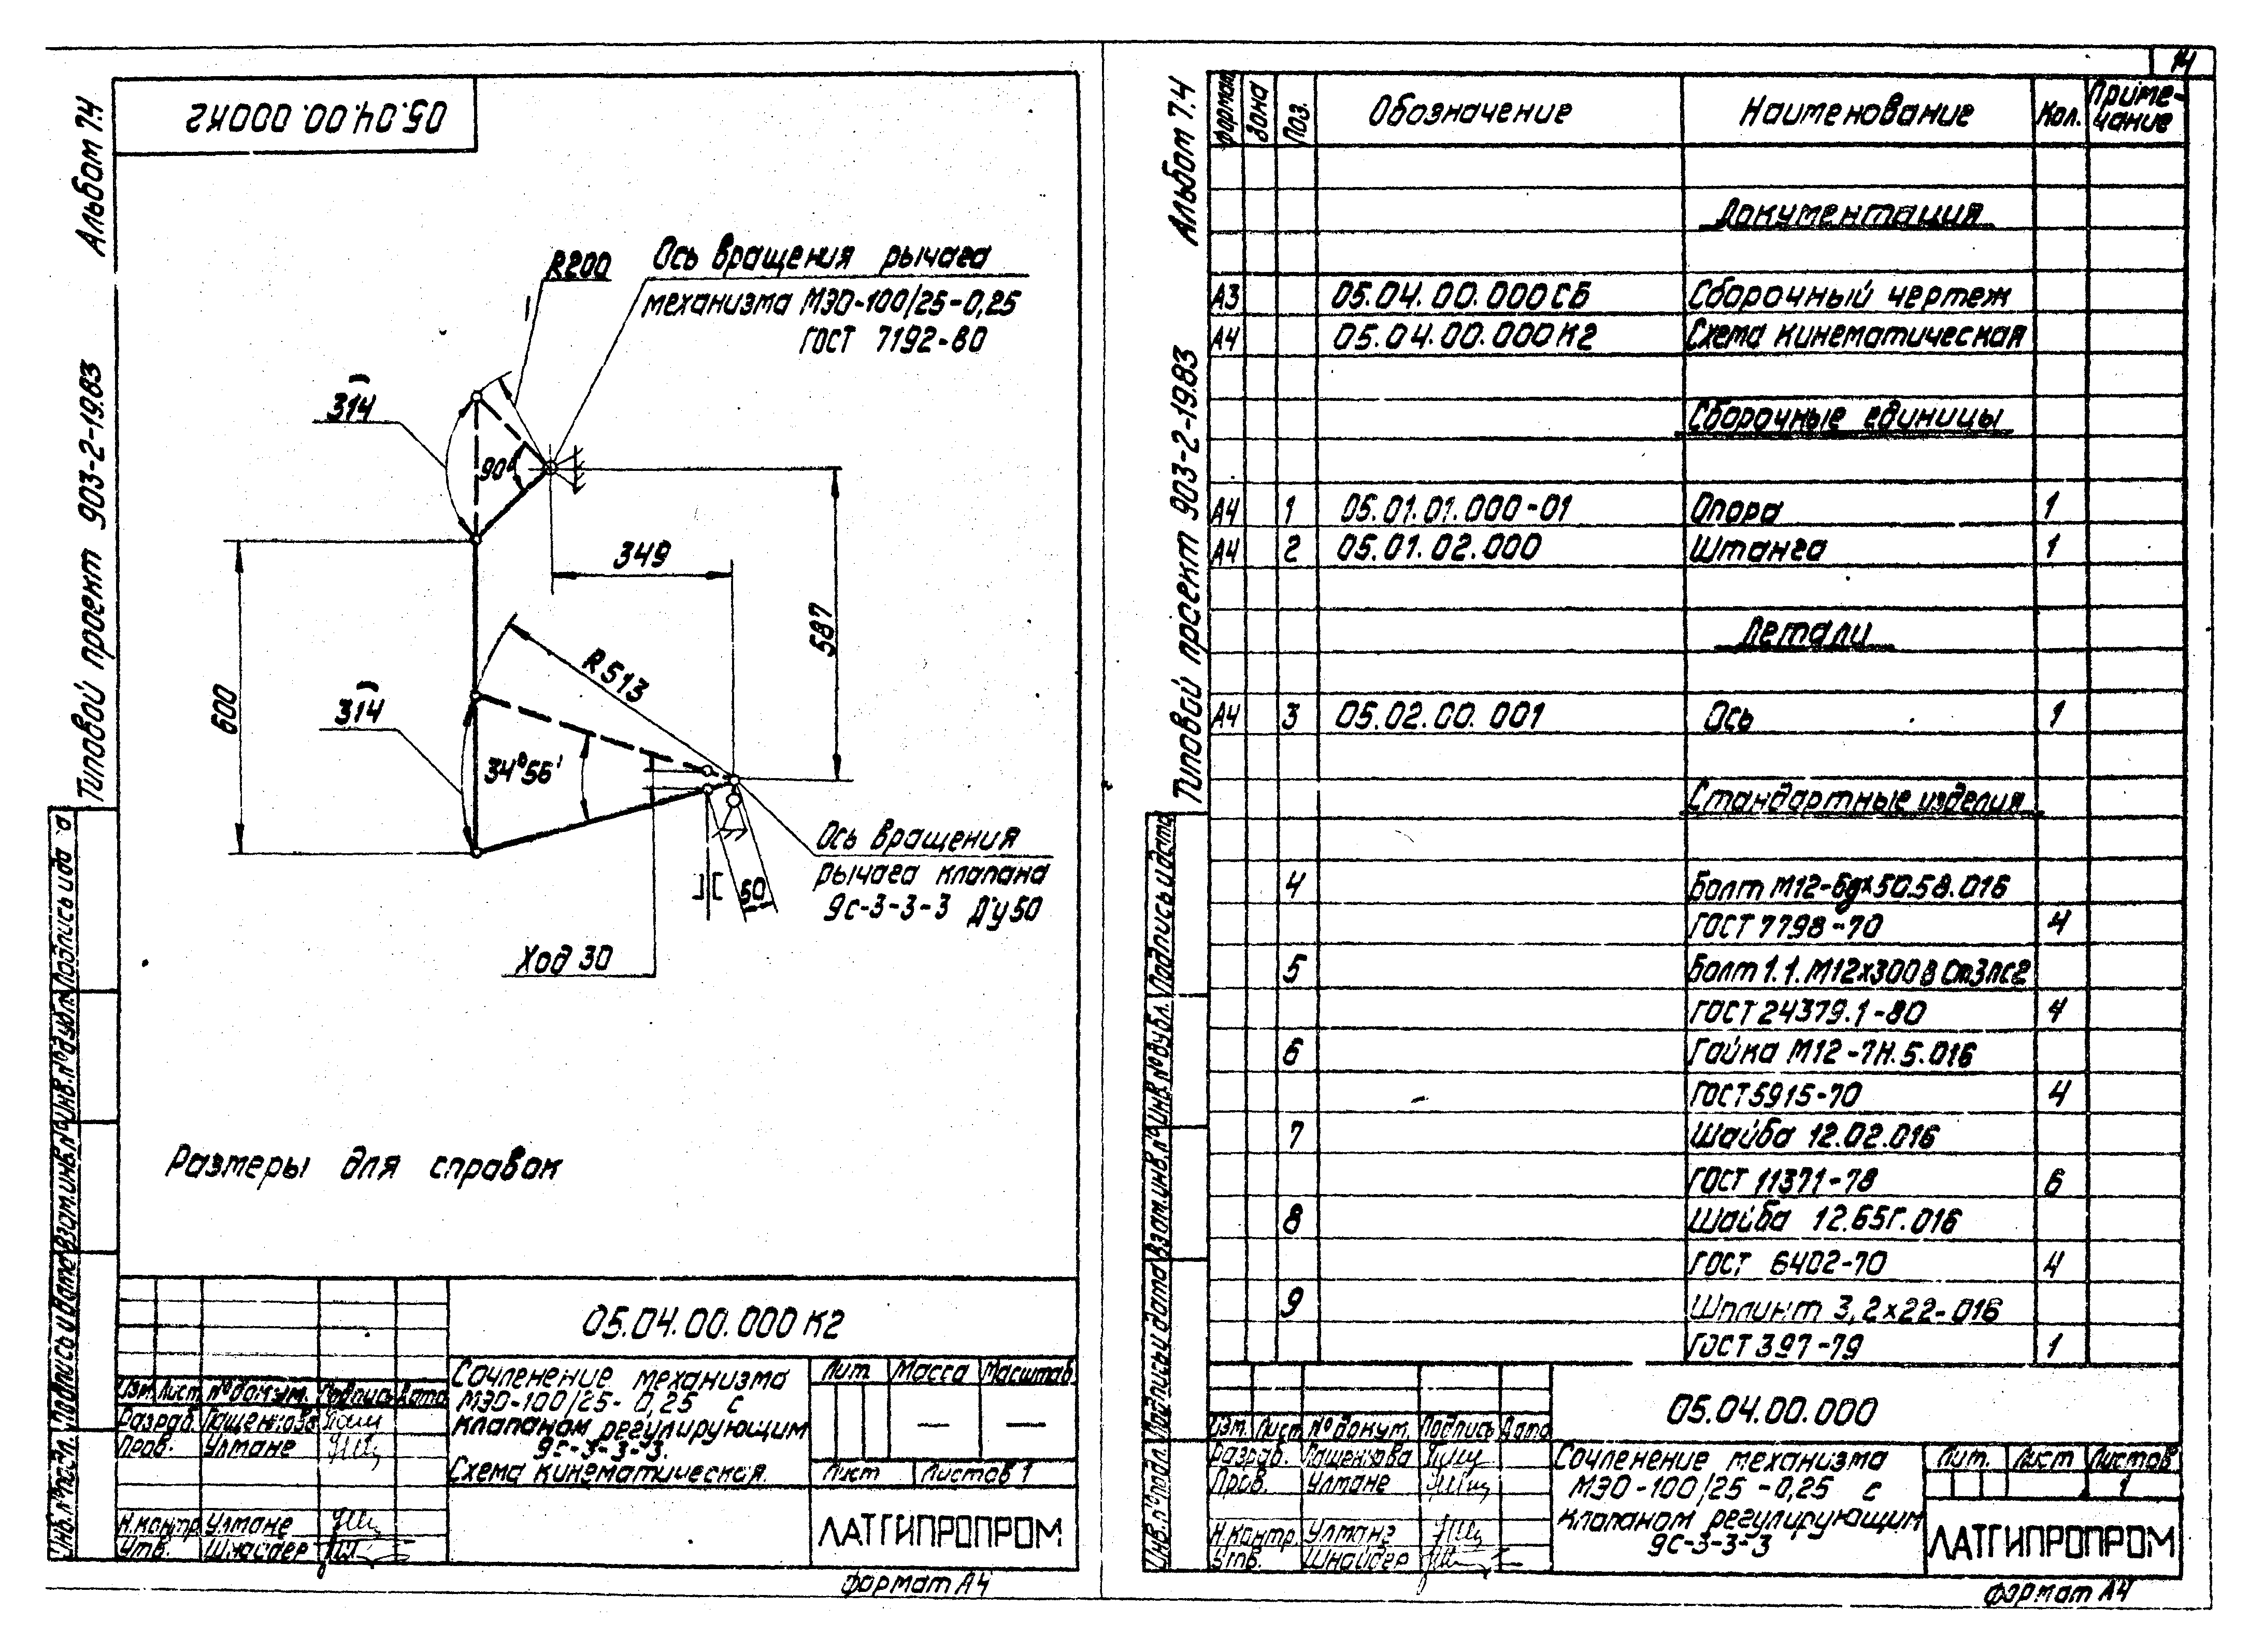 05.04.00.000К2
Альбом 7.4
Типовой проект 903-2-19.83
R200
Ось вращения рычага
механизма МЭО-100/25-0,25
ГОСТ 7192-80
314
90°
349
587
R513
600
314
34°56'
Ось вращения
рычага клапана
9с-3-3-3 Ду50
50
Ход 30
Размеры для справок
05.04.00.000 К2
Сочленение механизма
МЭО-100/25-0,25 с
клапаном регулирующим
9с-3-3-3.
Схема кинематическая.
Лит. Масса Масштаб
— —
Лист Листов 1
ЛАТГИПРОПРОМ
Изм. Лист №докум. Подпись Дата
Разраб. Пащенкова
Пров. Улмане
Н.контр. Улмане
Утв. Шнайдер
Инв.№подл. Подпись и дата Взам.инв.№ Инв.№дубл. Подпись и да а
формат А4
14
Альбом 7.4
Типовой проект 903-2-19.83
Формат Зона Поз. Обозначение Наименование Кол. Приме-
чание
Документация
А3 05.04.00.000СБ Сборочный чертеж
А4 05.04.00.000К2 Схема кинематическая
Сборочные единицы
А4 1 05.01.01.000-01 Опора 1
А4 2 05.01.02.000 Штанга 1
Детали
А4 3 05.02.00.001 Ось 1
Стандартные изделия
4 Болт М12-6gх50.58.016
ГОСТ 7798-70 4
5 Болт 1.1.М12х300ВСт3пс2
ГОСТ 24379.1-80 4
6 Гайка М12-7Н.5.016
ГОСТ 5915-70 4
7 Шайба 12.02.016
ГОСТ 11371-78 6
8 Шайба 12.65Г.016
ГОСТ 6402-70 4
9 Шплинт 3,2х22-016
ГОСТ 397-79 1
05.04.00.000
Изм. Лист №докум. Подпись Дата
Разраб. Пащенкова
Пров. Улмане
Н.контр. Улмане
Утв. Шнайдер
Сочленение механизма
МЭО-100/25-0,25 с
клапаном регулирующим
9с-3-3-3
Лит. Лист Листов
1
ЛАТГИПРОПРОМ
Инв.№подл. Подпись и дата Взам.инв.№ Инв.№дубл. Подпись и дата
формат А4